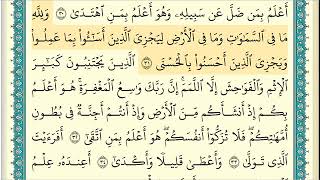 أَعْلَمُ بِمَن ضَلَّ عَن سَبِيلِهِۦ وَهُوَ أَعْلَمُ بِمَنِ ٱهْتَدَىٰ ٣٠ وَلِلَّهِ
مَا فِى ٱلسَّمَٰوَٰتِ وَمَا فِى ٱلْأَرْضِ لِيَجْزِىَ ٱلَّذِينَ أَسَٰٓـُٔوا۟ بِمَا عَمِلُوا۟
وَيَجْزِىَ ٱلَّذِينَ أَحْسَنُوا۟ بِٱلْحُسْنَى ٣١ ٱلَّذِينَ يَجْتَنِبُونَ كَبَٰٓئِرَ
ٱلْإِثْمِ وَٱلْفَوَٰحِشَ إِلَّا ٱللَّمَمَ إِنَّ رَبَّكَ وَٰسِعُ ٱلْمَغْفِرَةِ هُوَ أَعْلَمُ
بِكُمْ إِذْ أَنشَأَكُم مِّنَ ٱلْأَرْضِ وَإِذْ أَنتُمْ أَجِنَّةٌ فِى بُطُونِ
أُمَّهَٰتِكُمْ فَلَا تُزَكُّوٓا۟ أَنفُسَكُمْ هُوَ أَعْلَمُ بِمَنِ ٱتَّقَىٰٓ ٣٢ أَفَرَءَيْتَ
ٱلَّذِى تَوَلَّىٰ ٣٣ وَأَعْطَىٰ قَلِيلًا وَأَكْدَىٰٓ ٣٤ أَعِندَهُۥ عِلْمُ